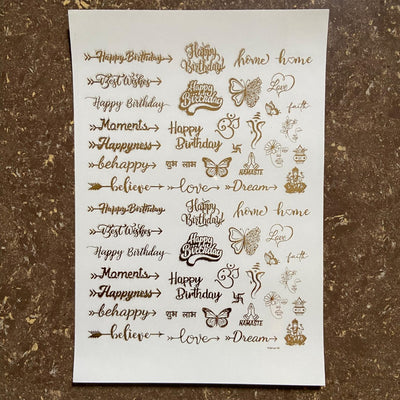 Happy Birthday Happy Birthday! home home
Best Wishes Love
Happy Birthday Happy Birthday faith
Moments Happy Birthday ॐ
Happyness
behappy शुभ लाभ NAMASTE
believe love Dream
Happy Birthday Happy Birthday! home home
Best Wishes Love
Happy Birthday Happy Birthday
Moments Happy Birthday ॐ
Happyness
behappy शुभ लाभ NAMASTE
believe love Dream